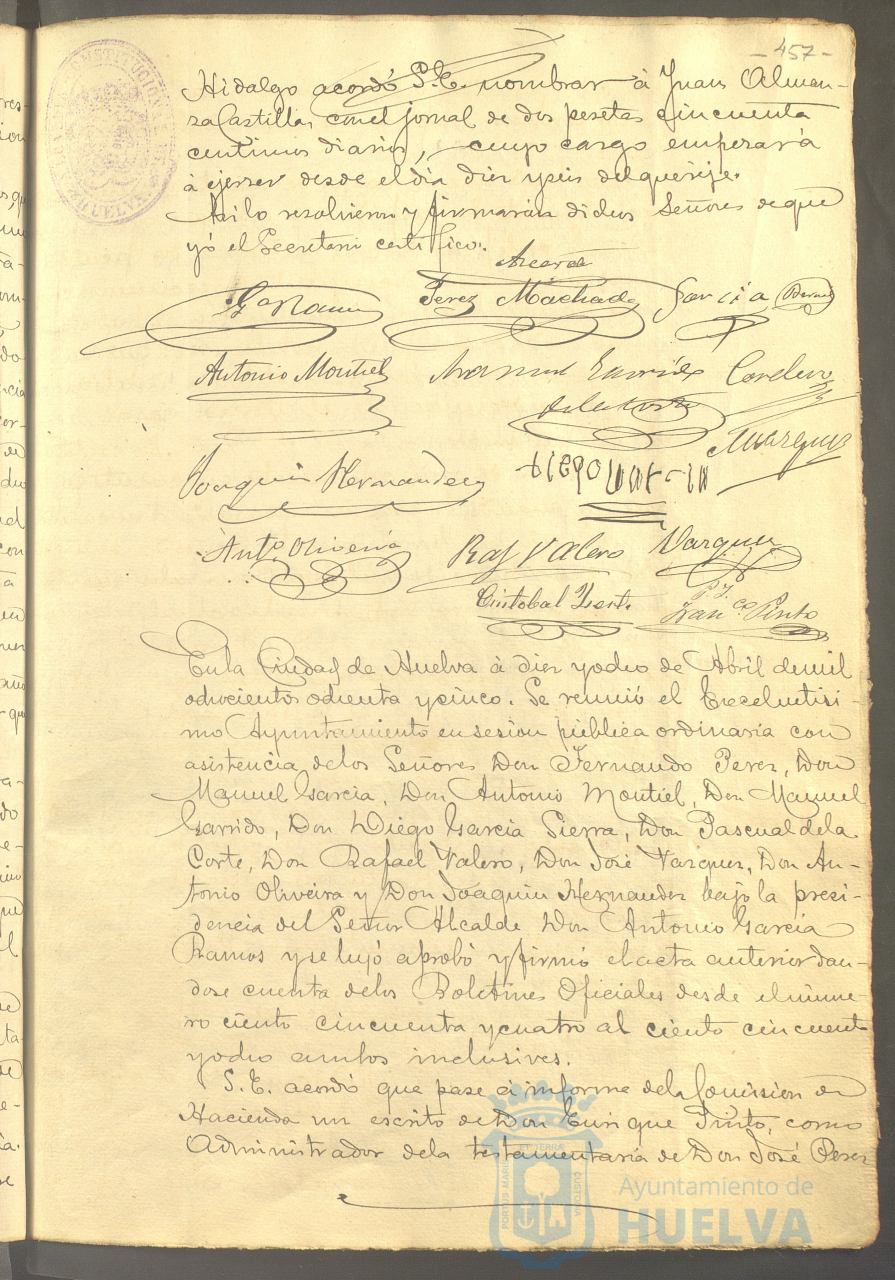 - 457 -
Hidalgo acordó S.E. nombrar à Juan Alman-
za Castilla, con el jornal de dos pesetas cincuenta
centimos diarios, cuyo cargo empezará
à ejerser desde el dia diez y seis del que rije.
Asi lo resolvieron y firmarán dichos Señores de que
yó el Secretario certifico.
G.ª Ramos
Perez Machado
Garcia
Antonio Montiel
Manuel Garrido
Cordero
de la Corte
Marquez
Joaquin Hernandez
Antº Oliveira
Raf Valero
Vazquez
Cristobal
Franco Pinto
En la Ciudad de Huelva à diez y ocho de Abril de mil
ochocientos ochenta y cinco. Se reunió el Excelentisi-
mo Ayuntamiento en sesion pública ordinaria con
asistencia de los Señores Don Fernando Perez, Don
Manuel Garcia, Don Antonio Montiel, Don Manuel
Garrido, Don Diego Garcia Sierra, Don Pascual de la
Corte, Don Rafael Valero, Don José Vazquez, Don An-
tonio Oliveira y Don Joaquin Hernandez bajo la presi-
dencia del Señor Alcalde Don Antonio Garcia
Ramos y se leyó aprobó y firmó el acta anterior dan-
dose cuenta de los Boletines Oficiales desde el núme-
ro ciento cincuenta y cuatro al ciento cincuenta
y ocho ambos inclusives.
S.E. acordó que pase à informe de la Comision de
Hacienda un escrito de Don Enrique Pinto, como
Administrador de la testamentaria de Don José Perez
Ayuntamiento de
HUELVA